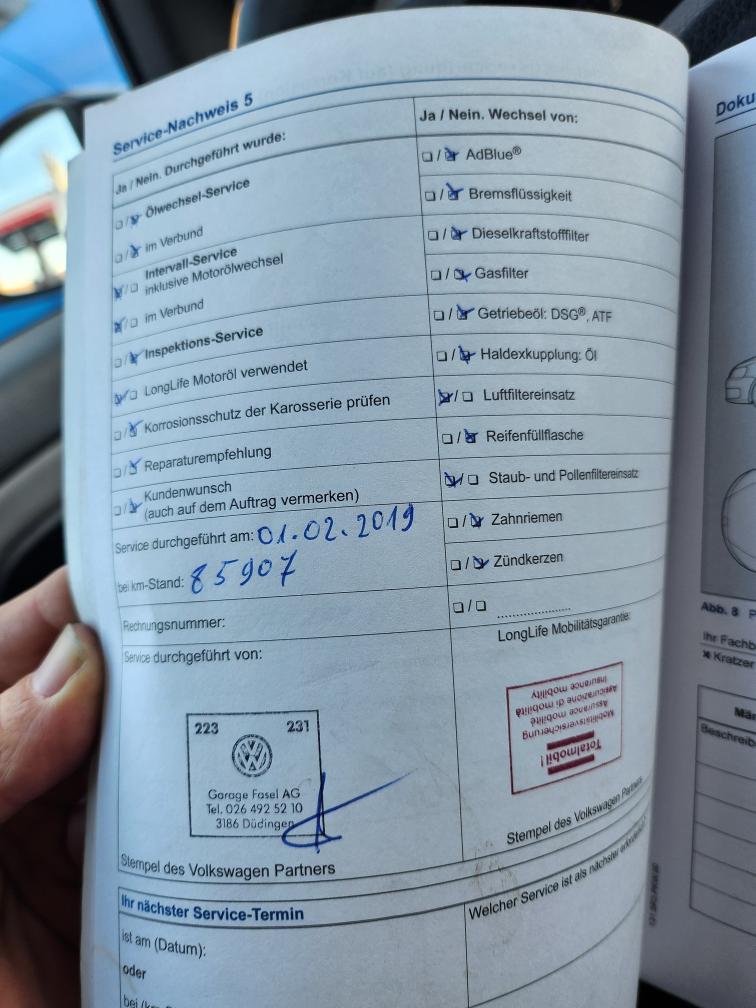 Service-Nachweis 5
Ja / Nein. Durchgeführt wurde:
☐/☒ Ölwechsel-Service
☐/☒ im Verbund
☒/☐ Intervall-Service
inklusive Motorölwechsel
☒/☐ im Verbund
☐/☒ Inspektions-Service
☒/☐ LongLife Motoröl verwendet
☐/☒ Korrosionsschutz der Karosserie prüfen
☐/☒ Reparaturempfehlung
☐/☒ Kundenwunsch
(auch auf dem Auftrag vermerken)
Service durchgeführt am: 01.02.2019
bei km-Stand: 85907
Rechnungsnummer:
Service durchgeführt von:
223 231
Garage Fasel AG
Tel. 026 492 52 10
3186 Düdingen
Stempel des Volkswagen Partners
Ja / Nein. Wechsel von:
☐/☒ AdBlue®
☐/☒ Bremsflüssigkeit
☐/☒ Dieselkraftstofffilter
☐/☒ Gasfilter
☐/☒ Getriebeöl: DSG®, ATF
☐/☒ Haldexkupplung: Öl
☒/☐ Luftfiltereinsatz
☐/☒ Reifenfüllflasche
☒/☐ Staub- und Pollenfiltereinsatz
☐/☒ Zahnriemen
☐/☒ Zündkerzen
☐/☐ ....................
LongLife Mobilitätsgarantie:
Totalmobil!
Mobilitätsversicherung
Assurance mobilité
Assicurazione di mobilità
Insurance mobility
Stempel des Volkswagen Partners
Ihr nächster Service-Termin
ist am (Datum):
oder
Welcher Service ist als nächster
Doku
Abb. 8
Ihr Fachb
✖ Kratzer
Beschreib